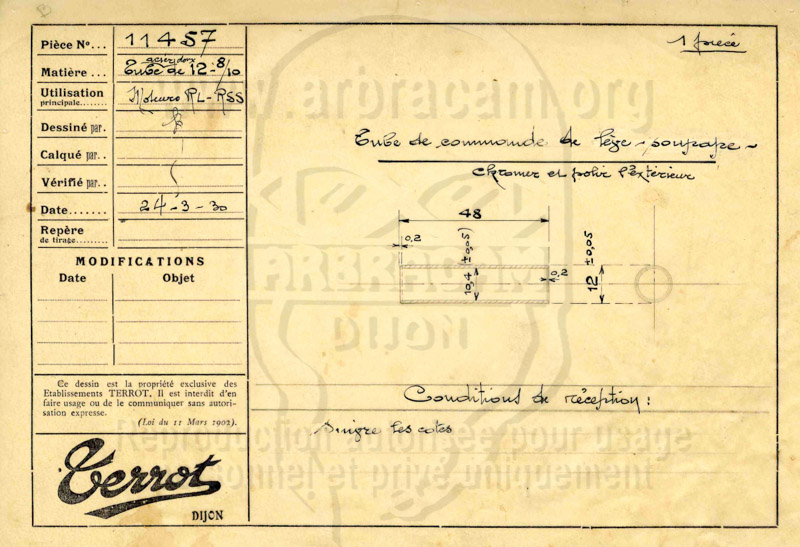 Pièce N°... 11457
acier doux
Matière ... Tube de 12-8/10
Utilisation
principale........ Moteurs RL-RSS
Dessiné par.
Calqué par..
Vérifié par..
Date....... 24-3-30
Repère
de tirage....
MODIFICATIONS
Date Objet
Ce dessin est la propriété exclusive des
Etablissements TERROT. Il est interdit d'en
faire usage ou de le communiquer sans autori-
sation expresse.
(Loi du 11 Mars 1902).
Terrot
DIJON
1 pièce
Tube de commande de lève-soupape-
Chromer et polir l'extérieur
48
0,2
10,4 (±0,05)
0,2
12 ±0,05
Conditions de réception :
Suivre les cotes
www.arbracam.org
ARBRACAM
DIJON
Reproduction autorisée pour usage
personnel et privé uniquement